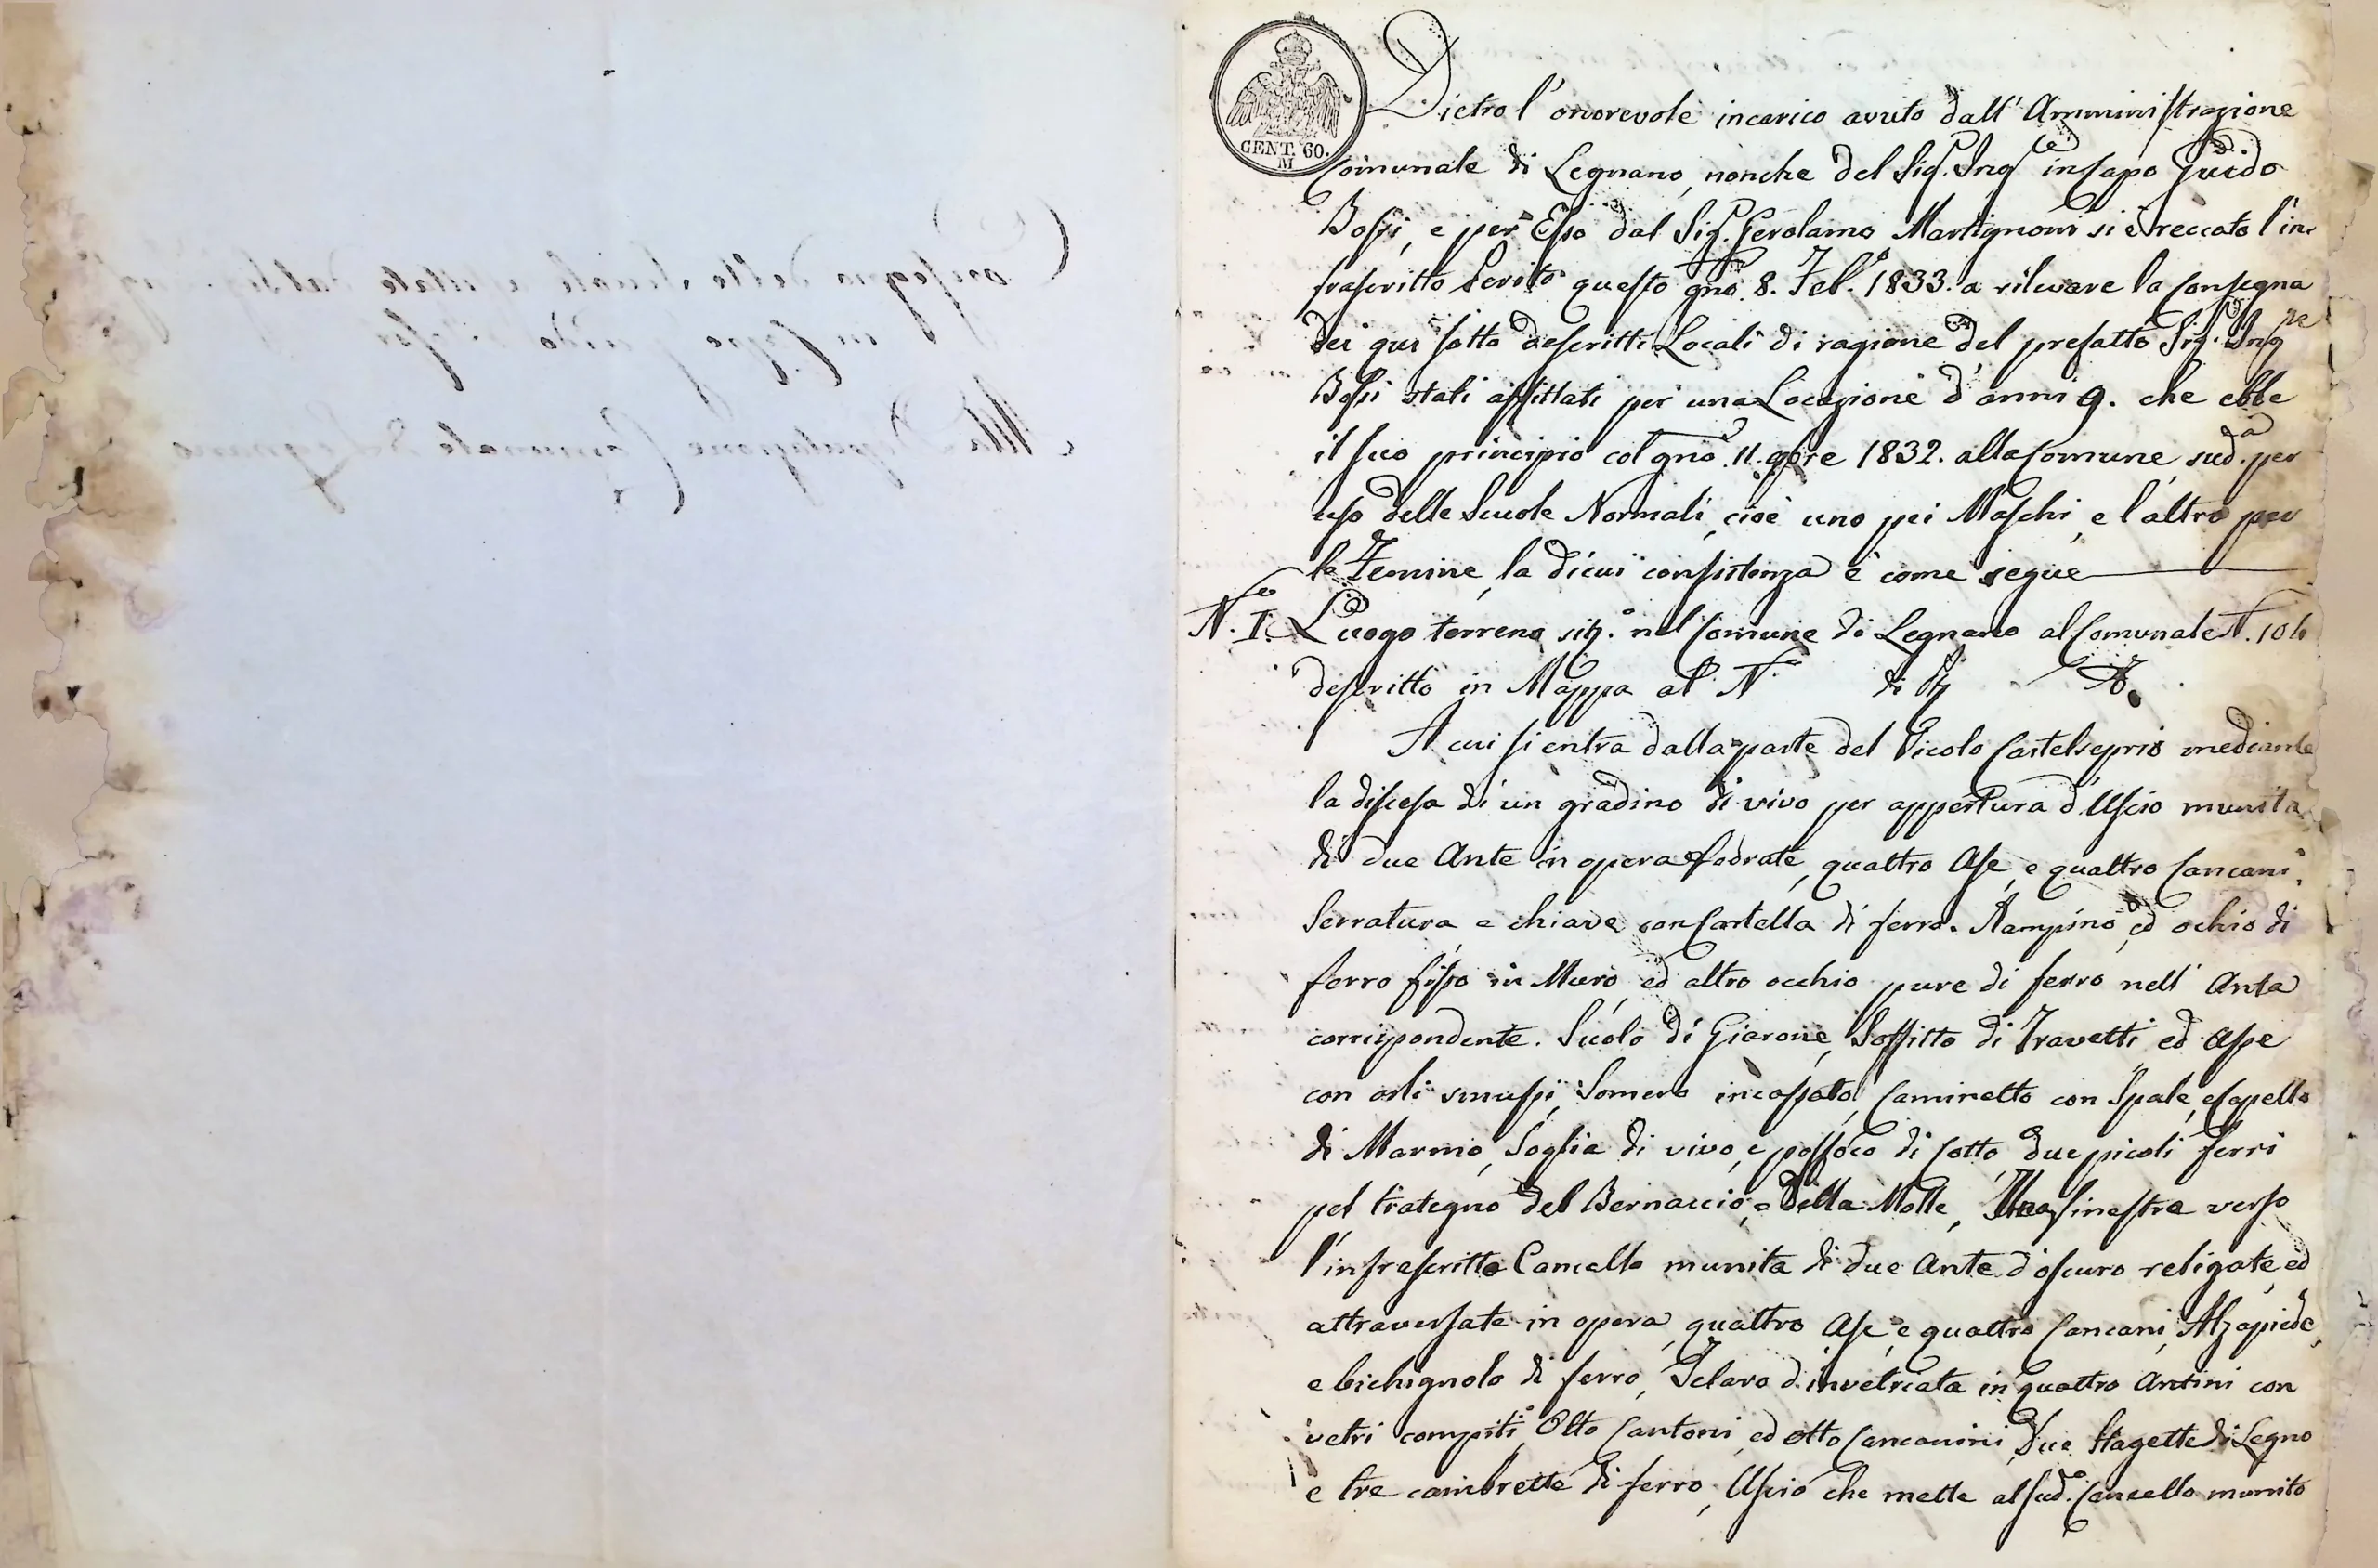 Consegna delle Scuole affittate dal Sig. Ing.
in Capo Guido Bossi
Alla Deputazione Comunale di Legnano
CENT. 60.
M
Dietro l'onorevole incarico avuto dall'Amministrazione
Comunale di Legnano, nonche del Sig. Ing.re in Capo Guido
Bossi, e per Esso dal Sig. Gerolamo Martignoni si è reccato l'in-
frascritto Perito questo gno. 8. Feb.o 1833. a rilevare la Consegna
dei qui sotto descritti Locali di ragione del prefatto Sig. Ing.re
Bossi stati affittati per una Locazione d'anni 9. che ebbe
il suo principio col gno. 11. 9bre 1832. alla Comune sud.a per
uso delle Scuole Normali, cioè uno pei Maschi, e l'altro per
le Femine, la di cui consistenza è come segue
N.o I. Luogo terreno sit.o nel Comune di Legnano al Comunale N. 104
descritto in Mappa al N.o di
A cui si entra dalla parte del Vicolo Castelseprio mediante
la discesa di un gradino di vivo per appertura d'Uscio munita
di due Ante in opera fodrate, quattro Ase, e quattro Cancani,
Serratura e chiave con Cartella di ferro. Rampino, ed ochio di
ferro fisso in Muro, ed altro occhio pure di ferro nell'Anta
corrispondente. Suolo di Giarone, Soffitto di Travetti ed Asse
con orli smussi, Somero incassato, Caminetto con Spale, e Capello
di Marmo, Soglia di vivo, e possoco di Cotto, due picoli ferri
pel trategno del Bernaccio, e della Molle, Una finestra verso
l'infrascritto Cancello munita di due Ante d'oscuro religate, ed
attraversate in opera, quattro Ase, e quattro Cancani, Alzapiede,
e bichignolo di ferro, Telaro d'invetriata in quattro Antini con
vetri compiti, Otto Cantoni, ed otto Cancanini, Due Stagette di Legno
e tre cambrette di ferro, Uscio che mette al sud.o Cancello munito